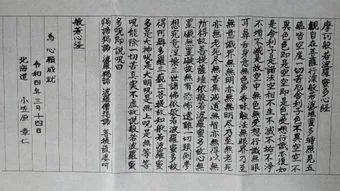 摩訶般若波羅蜜多心経
観自在菩薩行深般若波羅蜜多時照見五
蘊皆空度一切苦厄舎利子色不異空空不
異色色即是空空即是色受想行識亦復如
是舎利子是諸法空相不生不滅不垢不浄
不増不減是故空中無色無受想行識無眼
耳鼻舌身意無色声香味触法無眼界乃至
無意識界無無明亦無無明尽乃至無老死
亦無老死尽無苦集滅道無智亦無得以無
所得故菩提薩埵依般若波羅蜜多故心無
罣礙無罣礙故無有恐怖遠離一切顛倒夢
想究竟涅槃三世諸仏依般若波羅蜜多故
得阿耨多羅三藐三菩提故知般若波羅蜜
多是大神呪是大明呪是無上呪是無等等
呪能除一切苦真実不虚故説般若波羅蜜
多呪即説呪曰
羯諦羯諦 波羅羯諦 波羅僧羯諦 菩提薩婆訶
般若心経
為 心願成就
令和四年三月十四日
北海道 小笠原 章仁